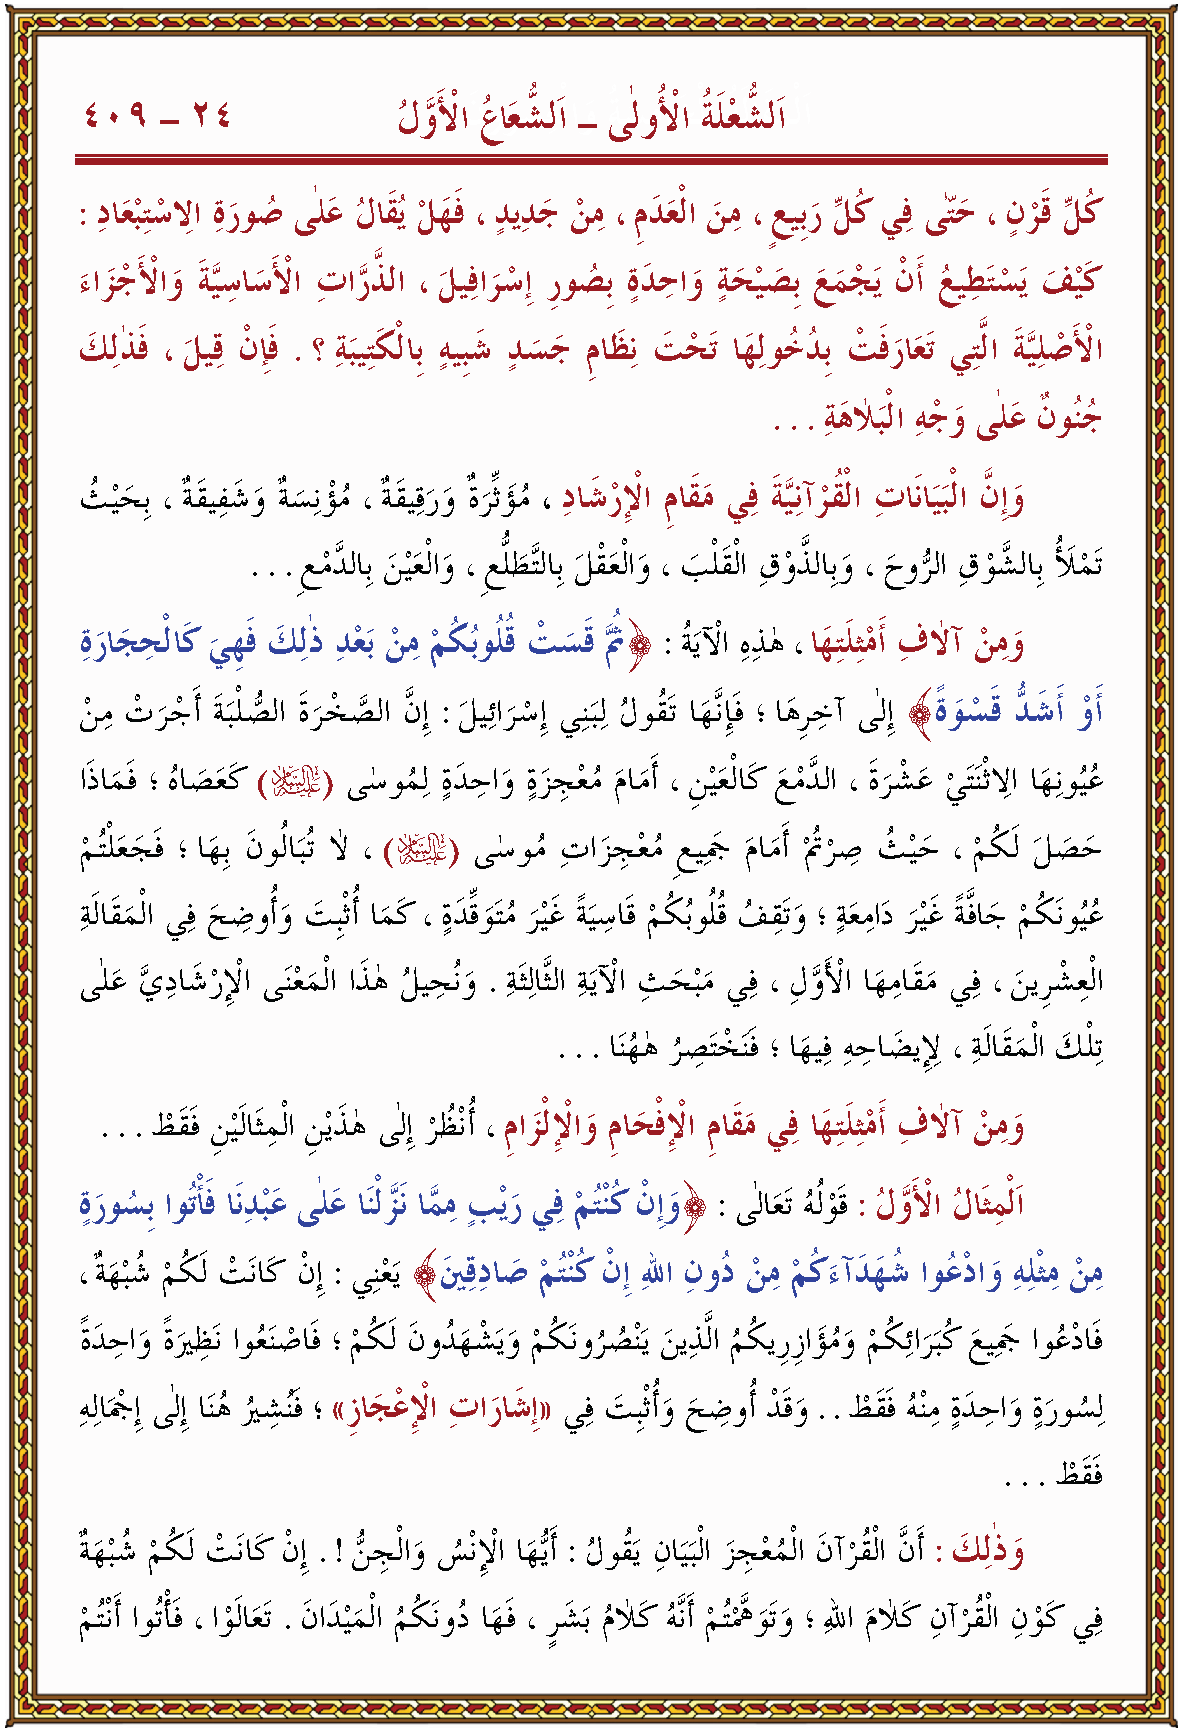 اَلشُّعْلَةُ الْأُولٰى – اَلشُّعَاعُ الْأَوَّلُ ٢٤ – ٤٠٩
كُلِّ قَرْنٍ ، حَتّٰى فِي كُلِّ رَبِيعٍ ، مِنَ الْعَدَمِ ، مِنْ جَدِيدٍ ، فَهَلْ يُقَالُ عَلٰى صُورَةِ الِاسْتِبْعَادِ :
كَيْفَ يَسْتَطِيعُ أَنْ يَجْمَعَ بِصَيْحَةٍ وَاحِدَةٍ بِصُورِ إِسْرَافِيلَ ، الذَّرَّاتِ الْأَسَاسِيَّةَ وَالْأَجْزَاءَ
الْأَصْلِيَّةَ الَّتِي تَعَارَفَتْ بِدُخُولِهَا تَحْتَ نِظَامِ جَسَدٍ شَبِيهٍ بِالْكَتِيبَةِ ؟ . فَإِنْ قِيلَ ، فَذٰلِكَ
جُنُونٌ عَلٰى وَجْهِ الْبَلَاهَةِ . . .
وَإِنَّ الْبَيَانَاتِ الْقُرْآنِيَّةَ فِي مَقَامِ الْإِرْشَادِ ، مُؤَثِّرَةٌ وَرَقِيقَةٌ ، مُؤْنِسَةٌ وَشَفِيقَةٌ ، بِحَيْثُ
تَمْلَأُ بِالشَّوْقِ الرُّوحَ ، وَبِالذَّوْقِ الْقَلْبَ ، وَالْعَقْلَ بِالتَّطَلُّعِ ، وَالْعَيْنَ بِالدَّمْعِ . . .
وَمِنْ آلَافِ أَمْثِلَتِهَا ، هٰذِهِ الْآيَةُ : ﴿ثُمَّ قَسَتْ قُلُوبُكُمْ مِنْ بَعْدِ ذٰلِكَ فَهِيَ كَالْحِجَارَةِ
أَوْ أَشَدُّ قَسْوَةً﴾ إِلٰى آخِرِهَا ؛ فَإِنَّهَا تَقُولُ لِبَنِي إِسْرَائِيلَ : إِنَّ الصَّخْرَةَ الصُّلْبَةَ أَجْرَتْ مِنْ
عُيُونِهَا الِاثْنَتَيْ عَشْرَةَ ، الدَّمْعَ كَالْعَيْنِ ، أَمَامَ مُعْجِزَةٍ وَاحِدَةٍ لِمُوسٰى (عليه السلام) كَعَصَاهُ ؛ فَمَاذَا
حَصَلَ لَكُمْ ، حَيْثُ صِرْتُمْ أَمَامَ جَمِيعِ مُعْجِزَاتِ مُوسٰى (عليه السلام) ، لَا تُبَالُونَ بِهَا ؛ فَجَعَلْتُمْ
عُيُونَكُمْ جَافَّةً غَيْرَ دَامِعَةٍ ؛ وَتَقِفُ قُلُوبُكُمْ قَاسِيَةً غَيْرَ مُتَوَقِّدَةٍ ، كَمَا أُثْبِتَ وَأُوضِحَ فِي الْمَقَالَةِ
الْعِشْرِينَ ، فِي مَقَامِهَا الْأَوَّلِ ، فِي مَبْحَثِ الْآيَةِ الثَّالِثَةِ . وَنُحِيلُ هٰذَا الْمَعْنَى الْإِرْشَادِيَّ عَلٰى
تِلْكَ الْمَقَالَةِ ، لِإِيضَاحِهِ فِيهَا ؛ فَنَخْتَصِرُ هٰهُنَا . . .
وَمِنْ آلَافِ أَمْثِلَتِهَا فِي مَقَامِ الْإِفْحَامِ وَالْإِلْزَامِ ، أُنْظُرْ إِلٰى هٰذَيْنِ الْمِثَالَيْنِ فَقَطْ . . .
اَلْمِثَالُ الْأَوَّلُ : قَوْلُهُ تَعَالٰى : ﴿وَإِنْ كُنْتُمْ فِي رَيْبٍ مِمَّا نَزَّلْنَا عَلٰى عَبْدِنَا فَأْتُوا بِسُورَةٍ
مِنْ مِثْلِهِ وَادْعُوا شُهَدَآءَكُمْ مِنْ دُونِ اللهِ إِنْ كُنْتُمْ صَادِقِينَ﴾ يَعْنِي : إِنْ كَانَتْ لَكُمْ شُبْهَةٌ ،
فَادْعُوا جَمِيعَ كُبَرَائِكُمْ وَمُؤَازِرِيكُمُ الَّذِينَ يَنْصُرُونَكُمْ وَيَشْهَدُونَ لَكُمْ ؛ فَاصْنَعُوا نَظِيرَةً وَاحِدَةً
لِسُورَةٍ وَاحِدَةٍ مِنْهُ فَقَطْ . . وَقَدْ أُوضِحَ وَأُثْبِتَ فِي «إِشَارَاتِ الْإِعْجَازِ» ؛ فَنُشِيرُ هُنَا إِلٰى إِجْمَالِهِ
فَقَطْ . . .
وَذٰلِكَ : أَنَّ الْقُرْآنَ الْمُعْجِزَ الْبَيَانِ يَقُولُ : أَيُّهَا الْإِنْسُ وَالْجِنُّ ! . إِنْ كَانَتْ لَكُمْ شُبْهَةٌ
فِي كَوْنِ الْقُرْآنِ كَلَامَ اللهِ ؛ وَتَوَهَّمْتُمْ أَنَّهُ كَلَامُ بَشَرٍ ، فَهَا دُونَكُمُ الْمَيْدَانَ . تَعَالَوْا ، فَأْتُوا أَنْتُمْ